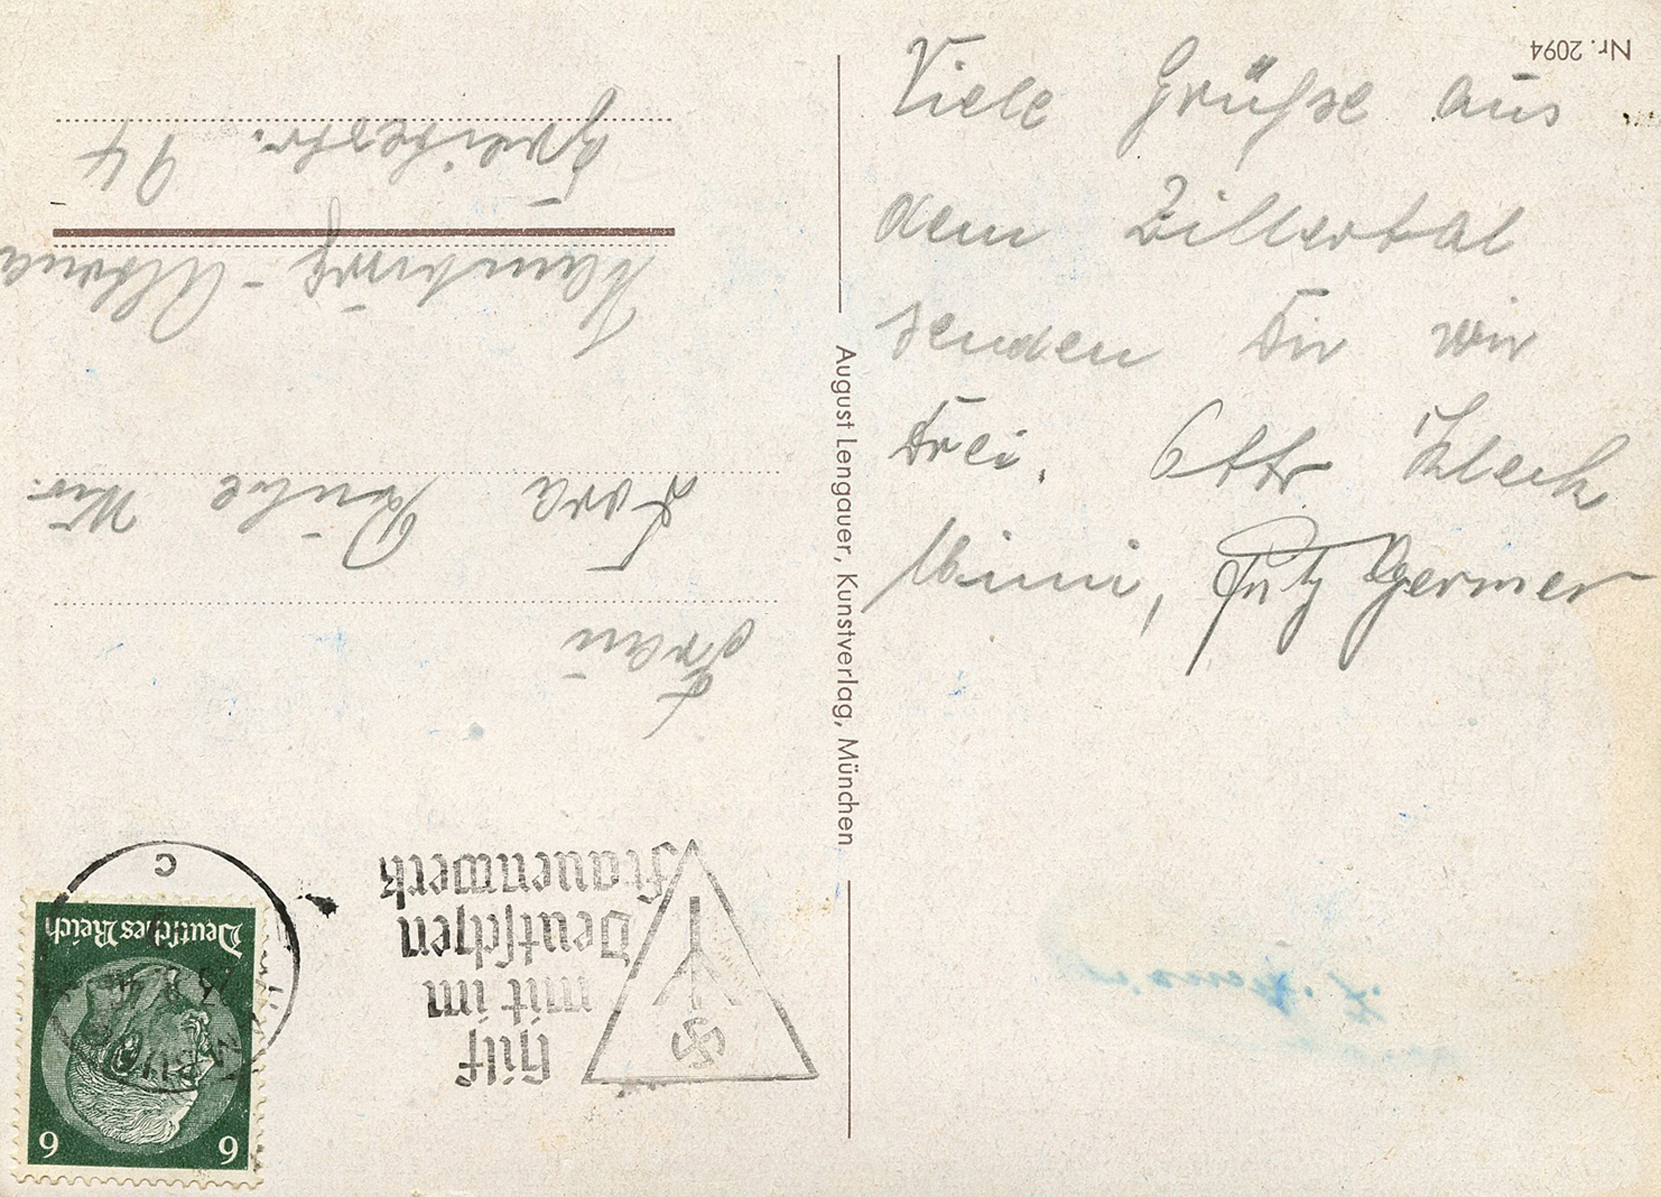 Viele Grüße aus
dem Zillertal
senden Dir wir
Drei. Otto
Mimi, Fritz Germer
Nr. 2094
August Lengauer, Kunstverlag, München
Frau
Dora Wwe.
Hamburg-Altona
Breitestr. 94
Hilf
mit im
Deutschen
Frauenwerk
Deutsches Reich
6 6
C